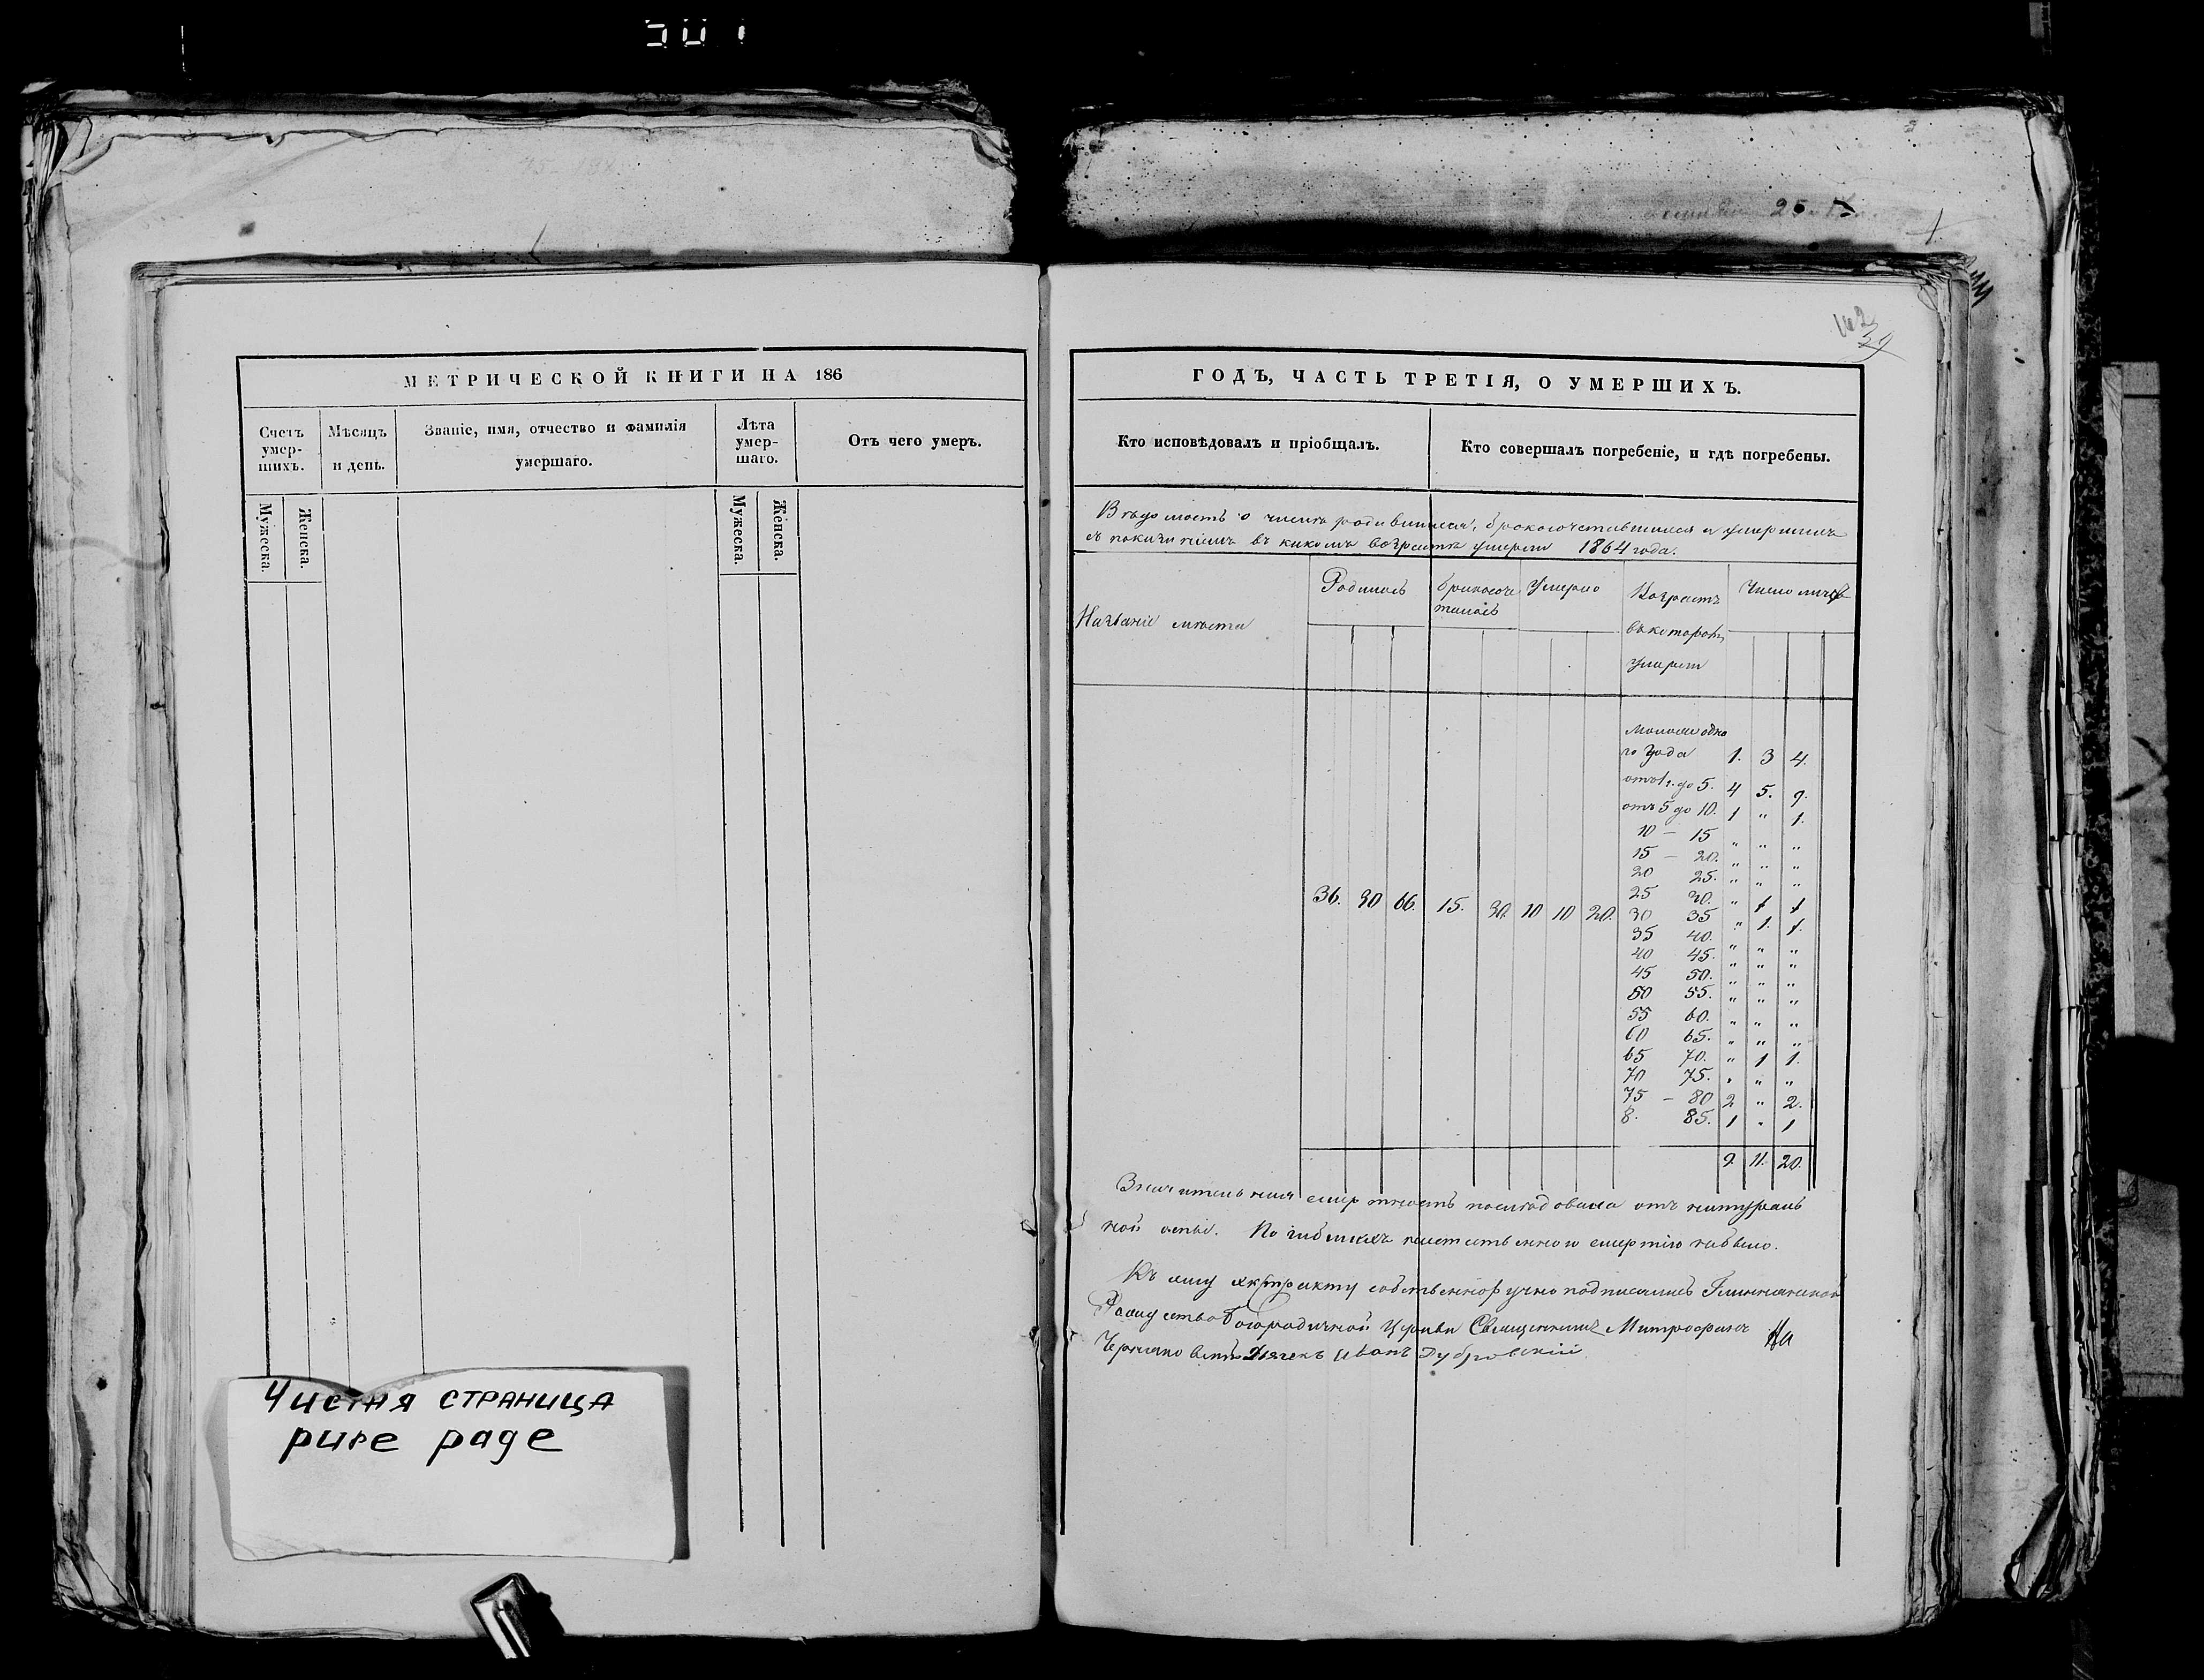 МЕТРИЧЕСКОЙ КНИГИ НА 186
Счетъ умер- шихъ.
Мѣсяцъ и день.
Званіе, имя, отчество и фамилія умершаго.
Лѣта умер- шаго.
Отъ чего умеръ.
Мужеска. Женска.
Мужеска. Женска.
Чистая страница
pure page
39
ГОДЪ, ЧАСТЬ ТРЕТІЯ, О УМЕРШИХЪ.
Кто исповѣдовалъ и пріобщалъ.
Кто совершалъ погребеніе, и гдѣ погребены.
Вѣдомость о числѣ родившихся, бракосочетавшихся и умершихъ
съ показаніемъ въ какомъ возрастѣ умерли 1864 года.
Названіе мѣста
Родилось
бракосоче
талось
Умерло
Возрастъ
въ которомъ
умерли
Число лицъ
36. 30 66. 15. 30. 10 10 20.
Моложе одно
го года 1. 3 4.
отъ 1 г. до 5. 4 5. 9.
отъ 5 до 10. 1 " 1.
10 — 15 " " "
15 — 20. " " "
20 25. " " "
25 30. " 1 1
30 35 " 1. 1.
35 40. " " "
40 45. " " "
45 50. " " "
50 55. " " "
55 60. " " "
60 65. " " "
65 70. " 1 1.
70 75. " " "
75 — 80 2 " 2.
8. 85. 1 " 1
9. 11. 20.
Значительная смертность послѣдовала отъ натураль
ной оспы. Погибшихъ неестественною смертію небыло.
Къ сему экстракту собственноручно подписались
Рождество Богородичной Церкви Священникъ Митрофанъ
Дьячекъ Иванъ Дубровскій